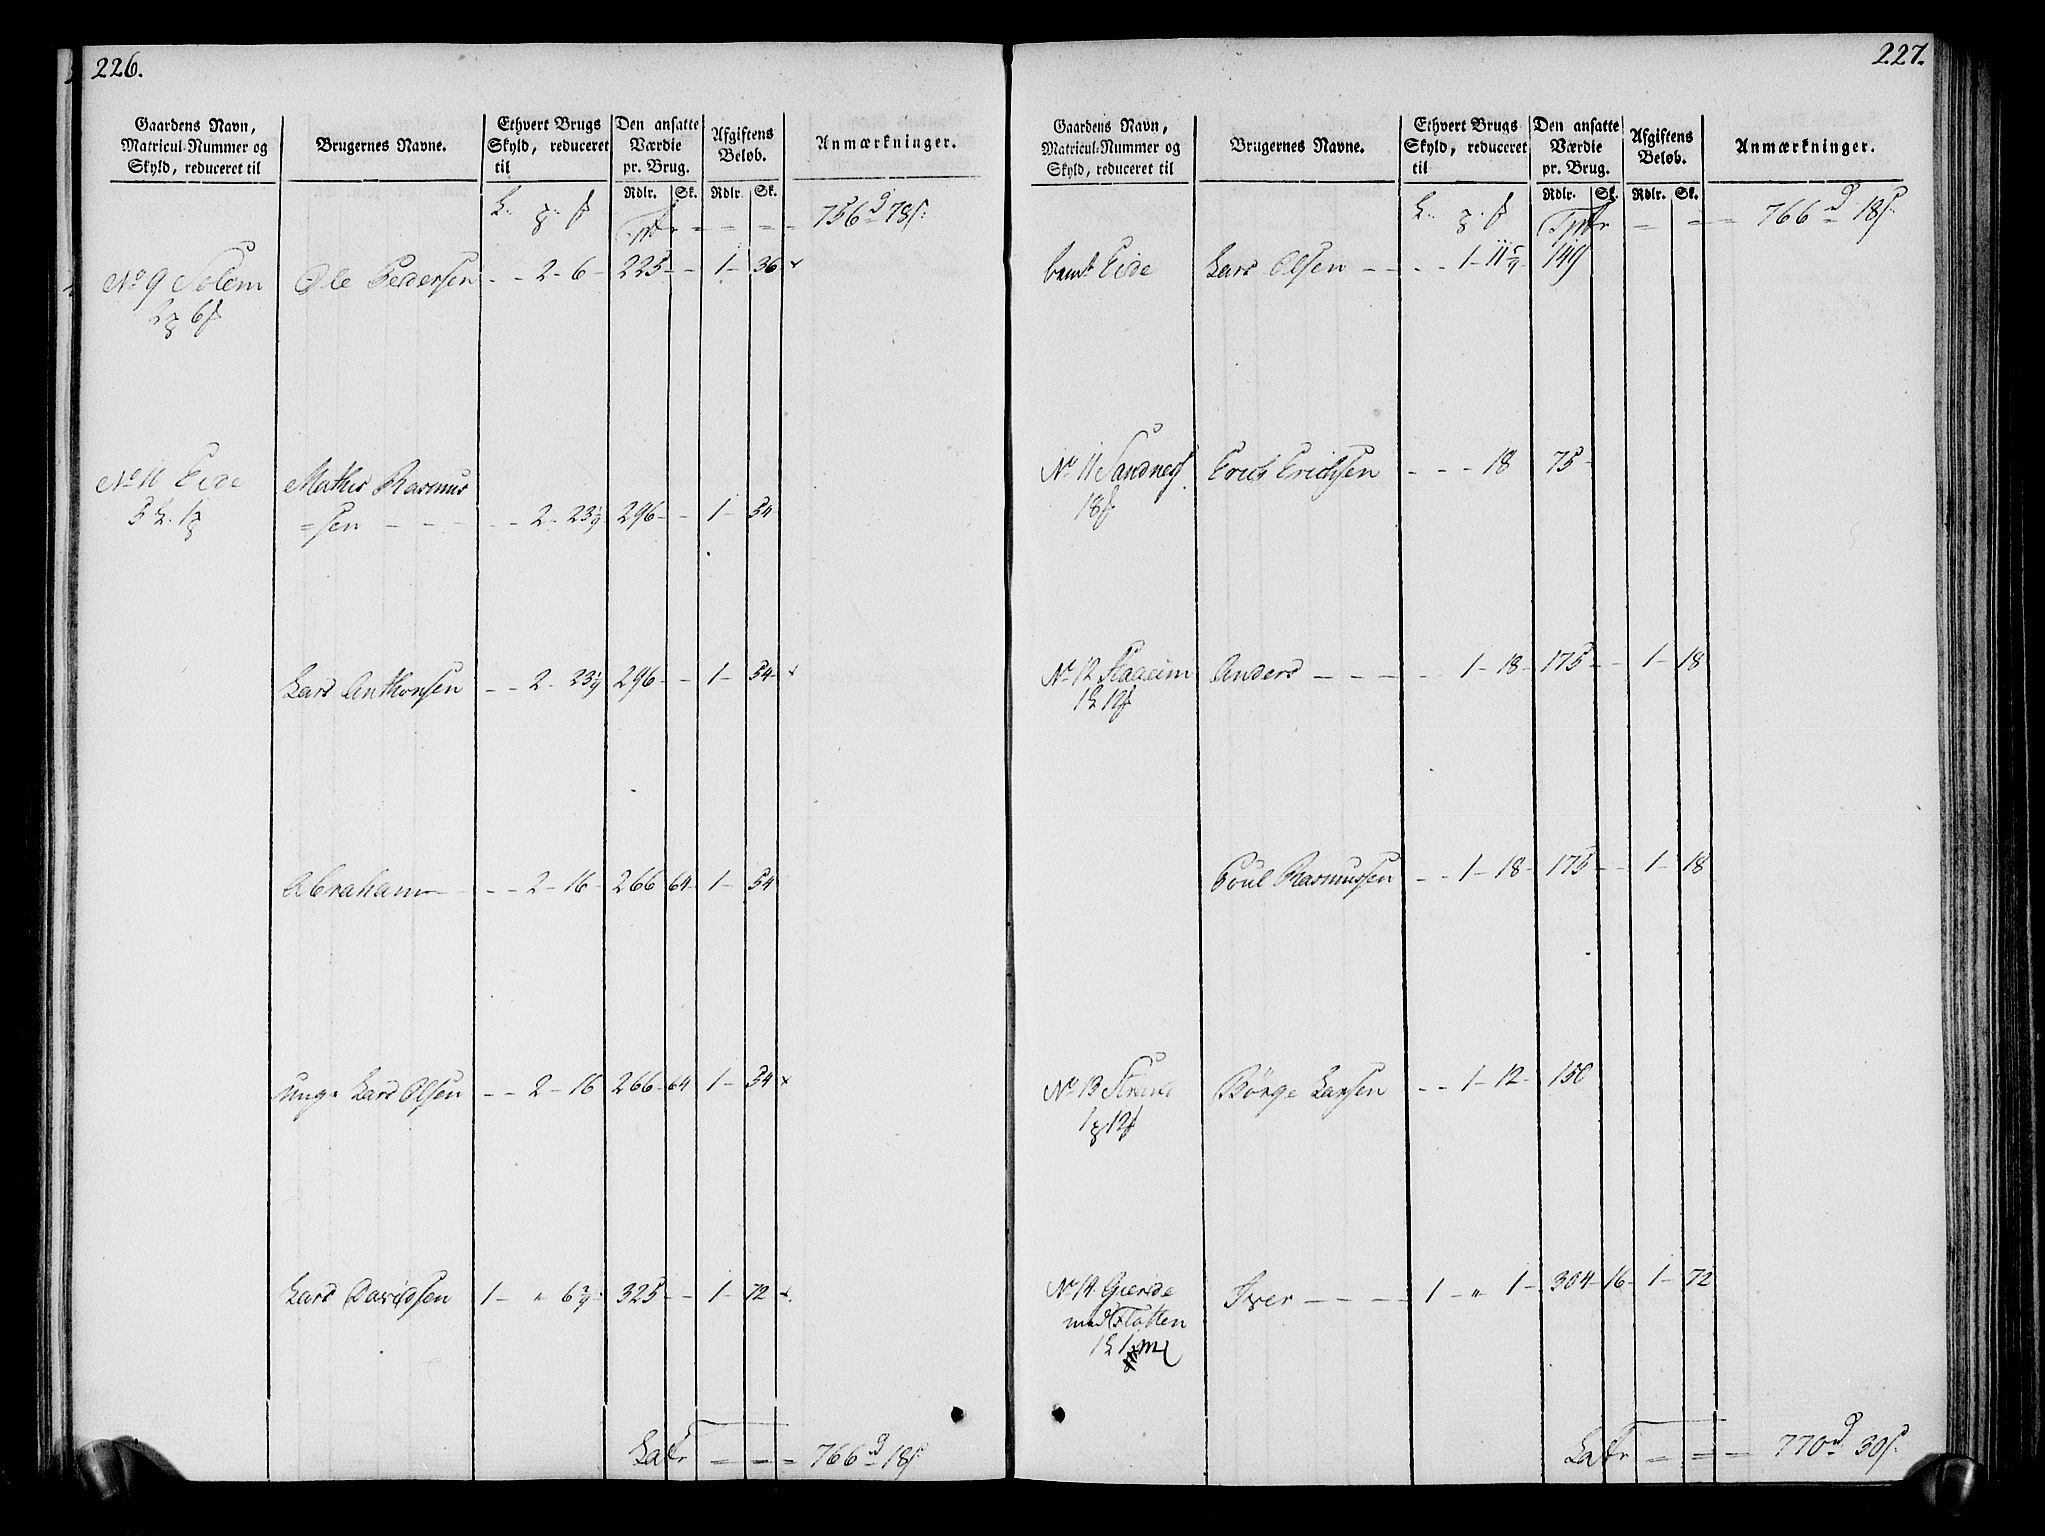 226.
Gaardens Navn, Matricul-Nummer og Skyld, reduceret til
Brugernes Navne.
Ethvert Brugs Skyld, reduceret til
Den ansatte Værdie pr. Brug.
Afgiftens Beløb.
Anmærkninger.
Rdlr. Sk. Rdlr. Sk.
Tpt = = = = 756 d 78 s.
No 9 Solem Ole Pedersen - - 2 - 6 - 225 - - 1 - 36
2 6
No 10 Eide Mathis Rasmus
5 1 =sen - - - - - 2 - 23 296 - - 1 - 54
Lars Anthonsen - - 2 - 23 296 - - 1 - 54
Abraham - - 2 - 16 - 266 64 - 1 - 54
unge Lars Olsen - - 2 - 16 266 - 64 1 - 54
Lars Davidsen 1 - " 6 325 - - 1 - 72
Latr = = = 766 d 18 s.
227.
Gaardens Navn, Matricul-Nummer og Skyld, reduceret til
Brugernes Navne.
Ethvert Brugs Skyld, reduceret til
Den ansatte Værdie pr. Brug.
Afgiftens Beløb.
Anmærkninger.
Rdlr. Sk. Rdlr. Sk.
Tptr = = = 766 d 18 s.
Eide Lars Olsen - - - - 1 - 11 5/9 149
No 11 Sandnes Erich Erichsen - - - 18 75 -
18
No 12 Anders - - - - - 1 - 18 - 175 - - 1 - 18
1 12
Poul Rasmussen - - 1 - 18 - 175 - - 1 - 18
No 13 Børge Larsen - - 1 - 12 - 150
1 12
No 14 Gierde Iver - - - 1 - " 1 - 304 - 16 - 1 - 72
med Flatten
Latr = = = 770 d 30 s.